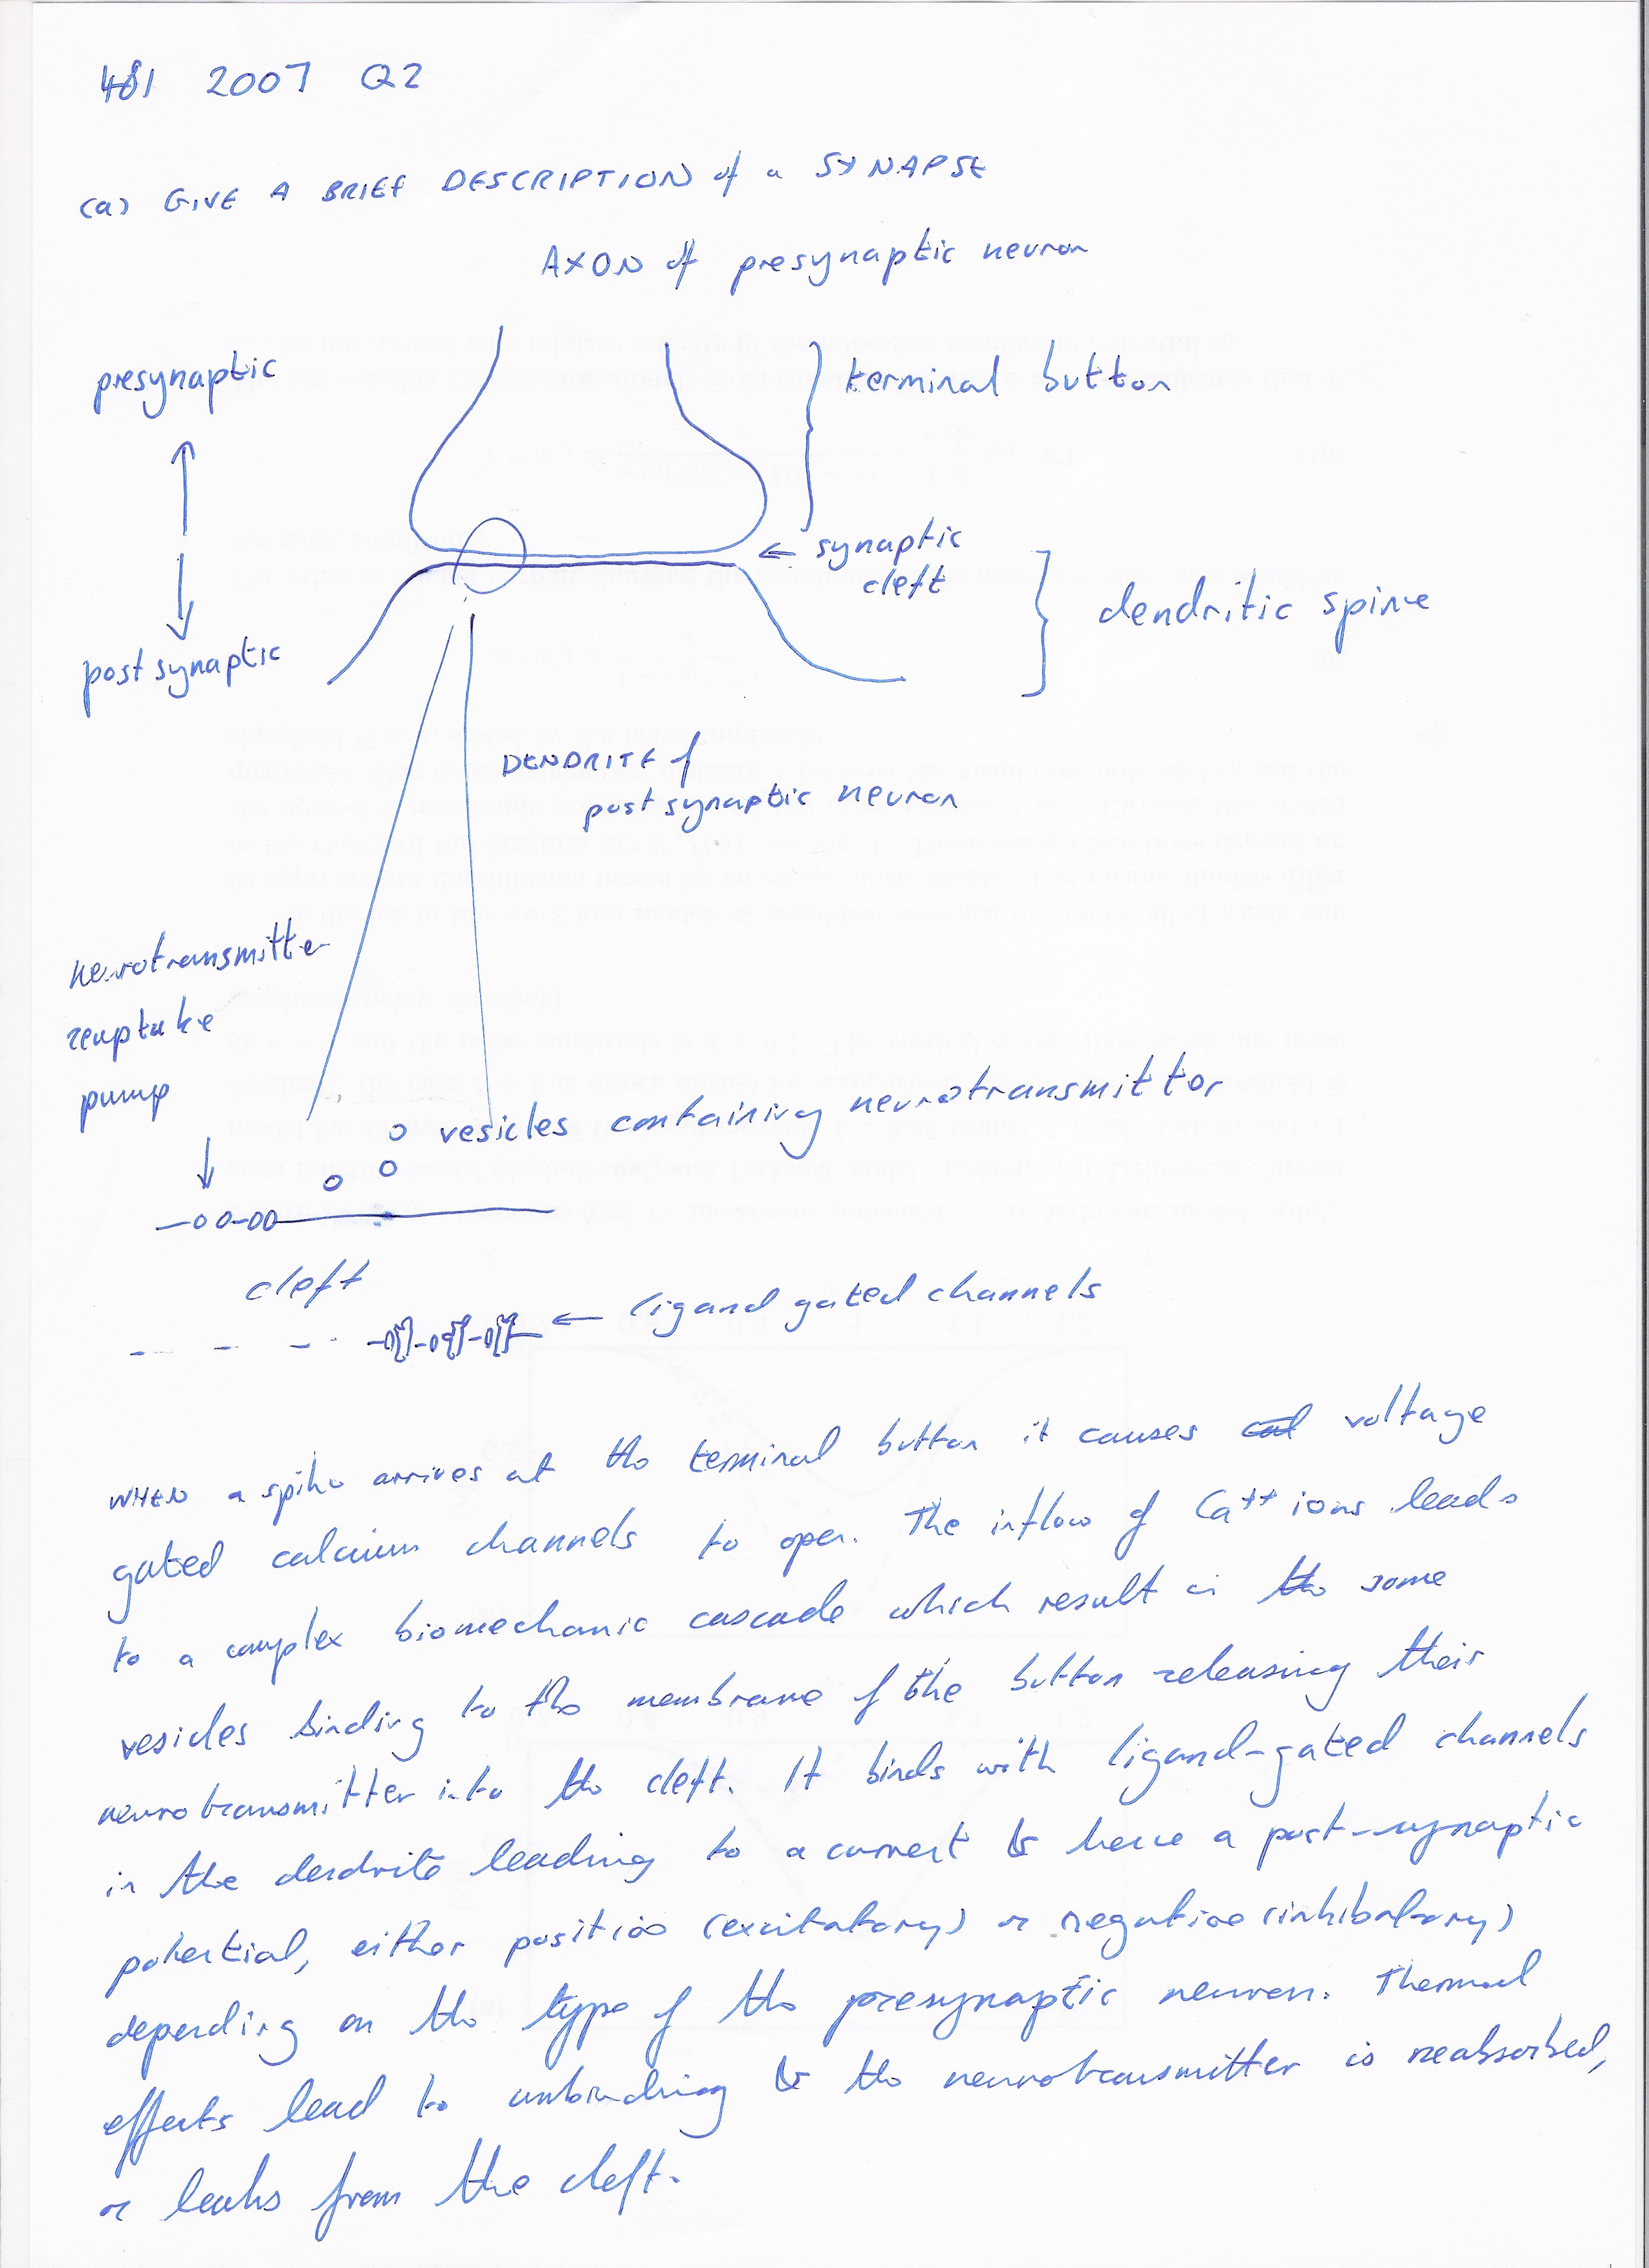 481 2007 Q2
(a) GIVE A BRIEF DESCRIPTION of a SYNAPSE
AXON of presynaptic neuron
presynaptic
terminal button
synaptic
cleft
dendritic spine
post synaptic
DENDRITE of
post synaptic neuron
neurotransmitter
reuptake
pump
vesicles containing neurotransmittor
cleft
ligand gated channels
WHEN a spike arrives at the terminal button it causes voltage
gated calcium channels to open. The inflow of Ca++ ions leads
to a complex biomechanic cascade which result in some
vesicles binding to the membrane of the button releasing their
neurotransmitter into the cleft. It binds with ligand-gated channels
in the dendrite leading to a current & hence a post-synaptic
potential, either positive (excitatory) or negative (inhibatory)
depending on the type of the presynaptic neuron. Thermal
effects lead to unbinding & the neurotransmitter is reabsorbed,
or leaks from the cleft.